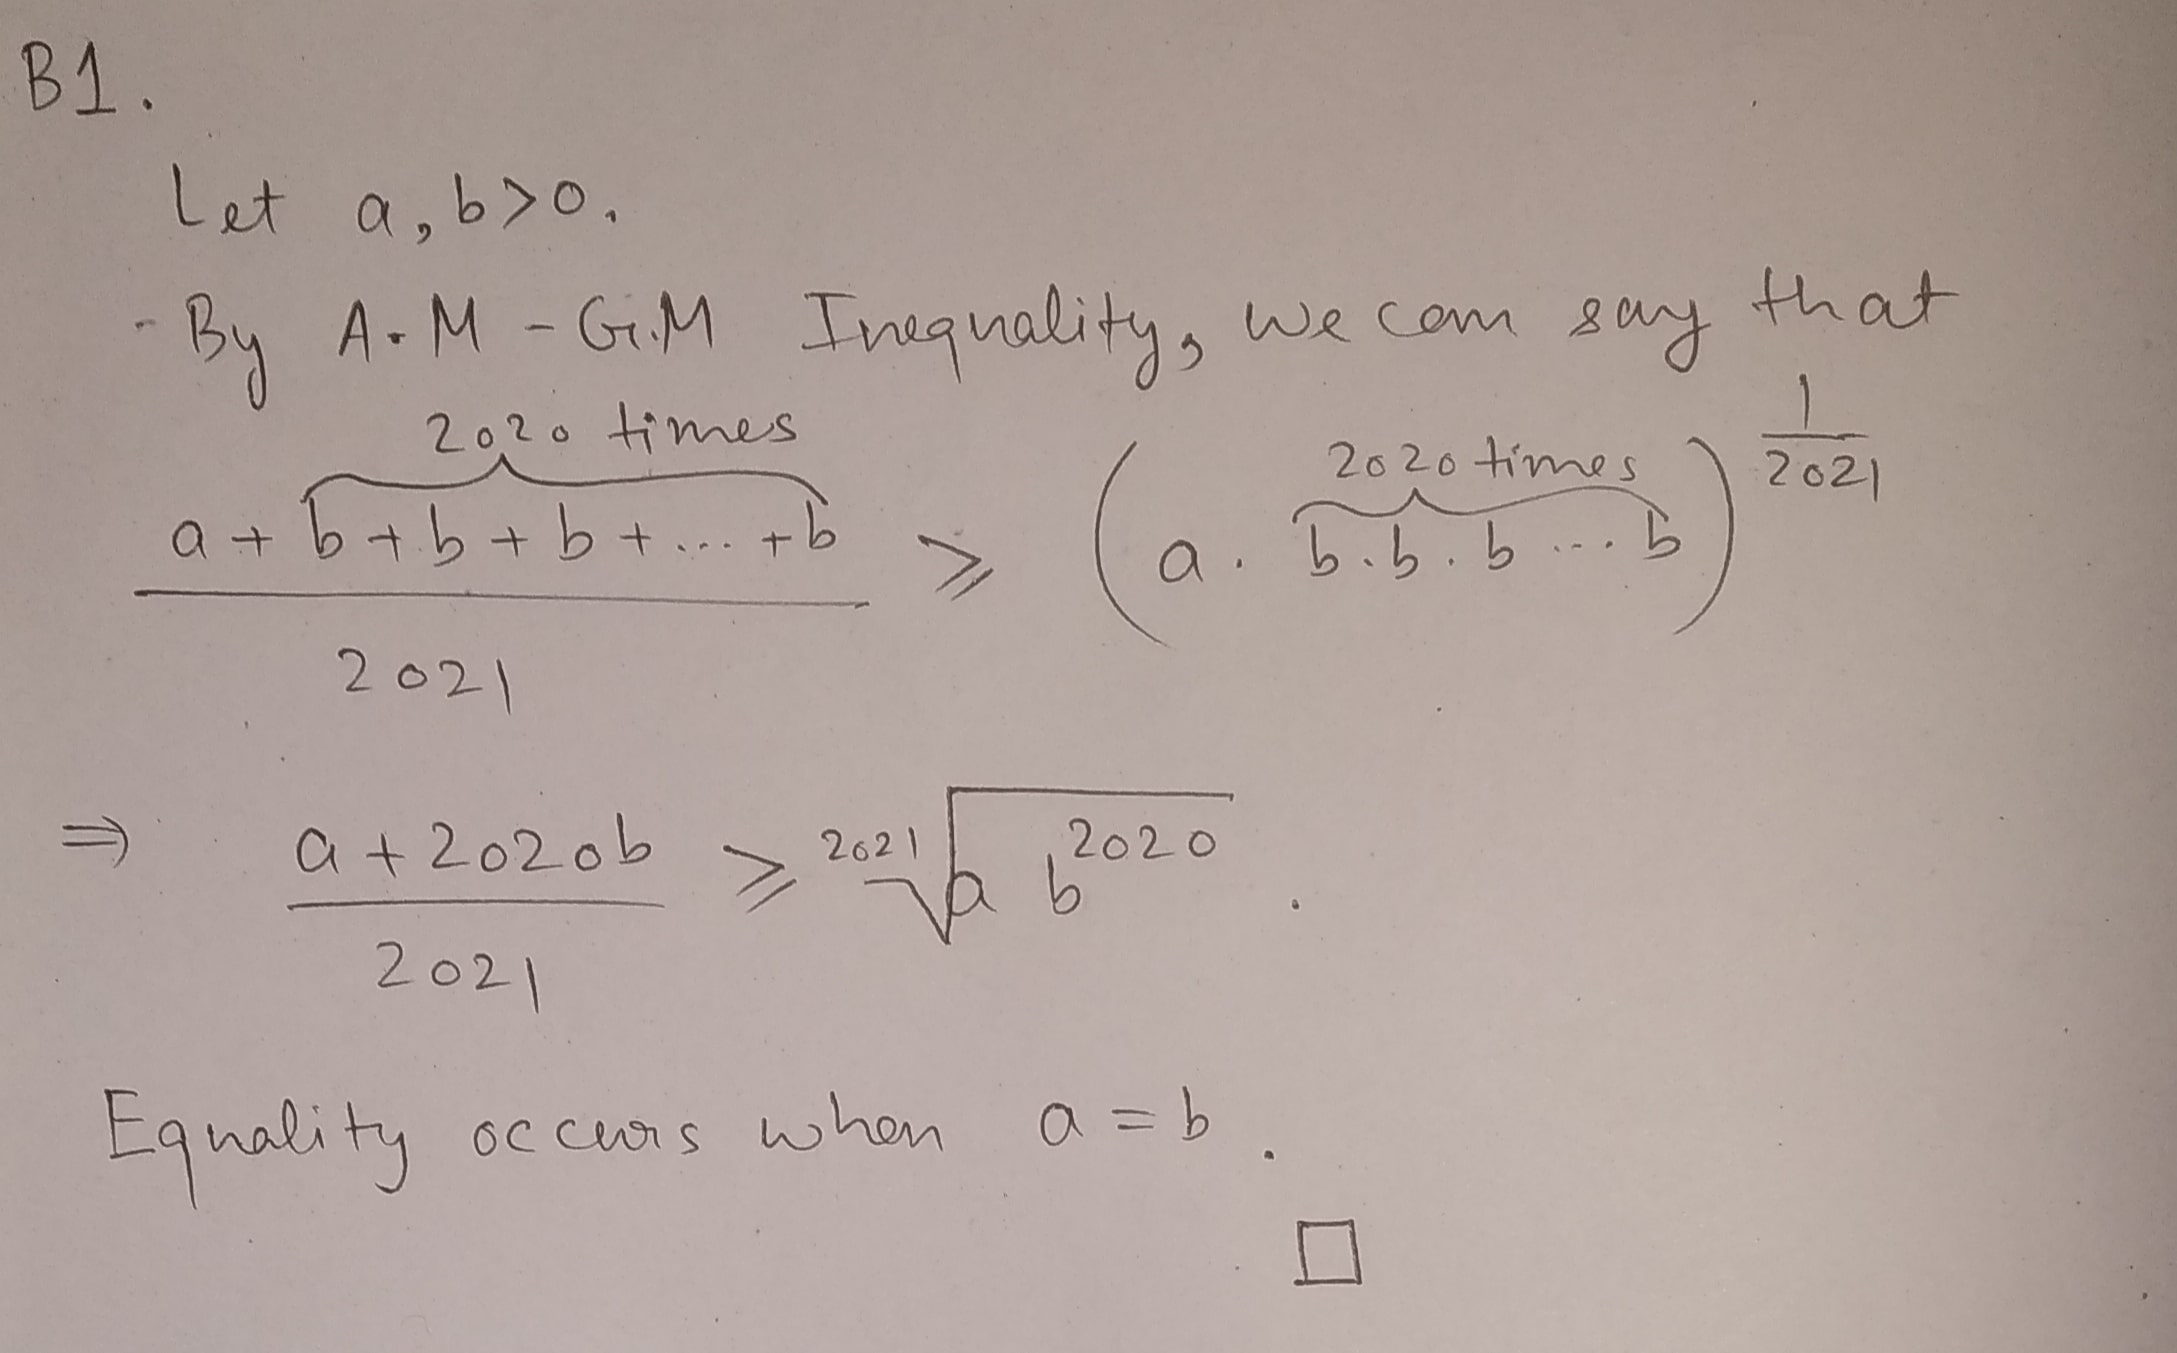 B1.
Let a, b > 0.
- By A.M - G.M Inequality, we can say that
\frac{a + \overbrace{b + b + b + ... + b}^{2020 times}}{2021} ⩾ (a . \overbrace{b . b . b ... b}^{2020 times})^{\frac{1}{2021}}
⇒ \frac{a + 2020b}{2021} ⩾ \sqrt[2021]{a b^{2020}} .
Equality occurs when a = b .
□